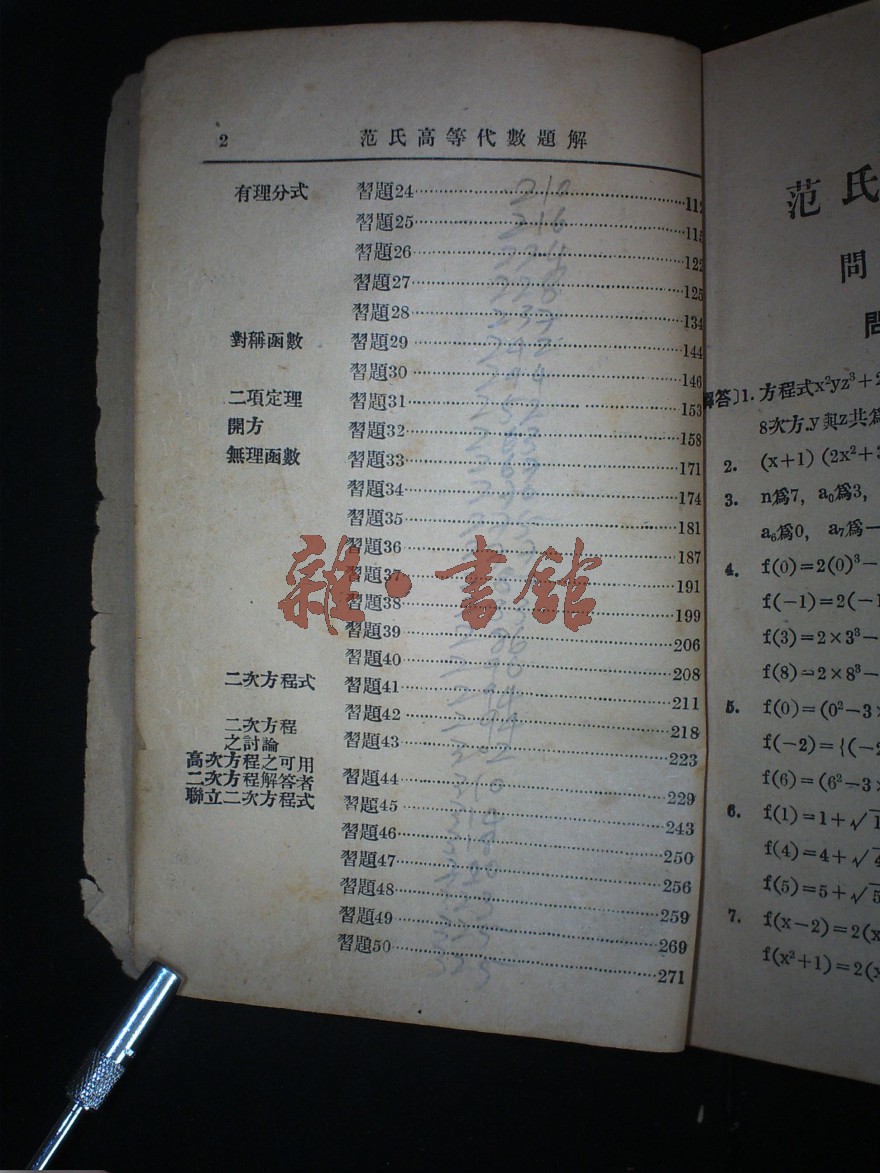 2 范氏高等代數題解
有理分式 習題24 112
210
習題25 115
216
習題26 122
習題27 125
習題28 134
237
對稱函數 習題29 144
242
習題30 146
二項定理 習題31 153
開方 習題32 158
無理函數 習題33 171
習題34 174
習題35 181
習題36 187
習題37 191
習題38 199
習題39 206
習題40 208
二次方程式 習題41 211
習題42 218
二次方程
之討論 習題43 223
高次方程之可用
二次方程解答者 習題44 229
310
聯立二次方程式 習題45 243
習題46 250
習題47 256
習題48 259
習題49 269
習題50 271
雜·書館
范氏
問
問
解答〕1. 方程式x²yz³+2
8次方.y與z共爲
2. (x+1) (2x²+3
3. n爲7, a₀爲3,
a₆爲0, a₇爲一
4. f(0)=2(0)³−
f(−1)=2(−1
f(3)=2×3³−
f(8)=2×8³−
5. f(0)=(0²−3×
f(−2)={(−2
f(6)=(6²−3×
6. f(1)=1+√1
f(4)=4+√4
f(5)=5+√5
7. f(x−2)=2(x
f(x²+1)=2(x